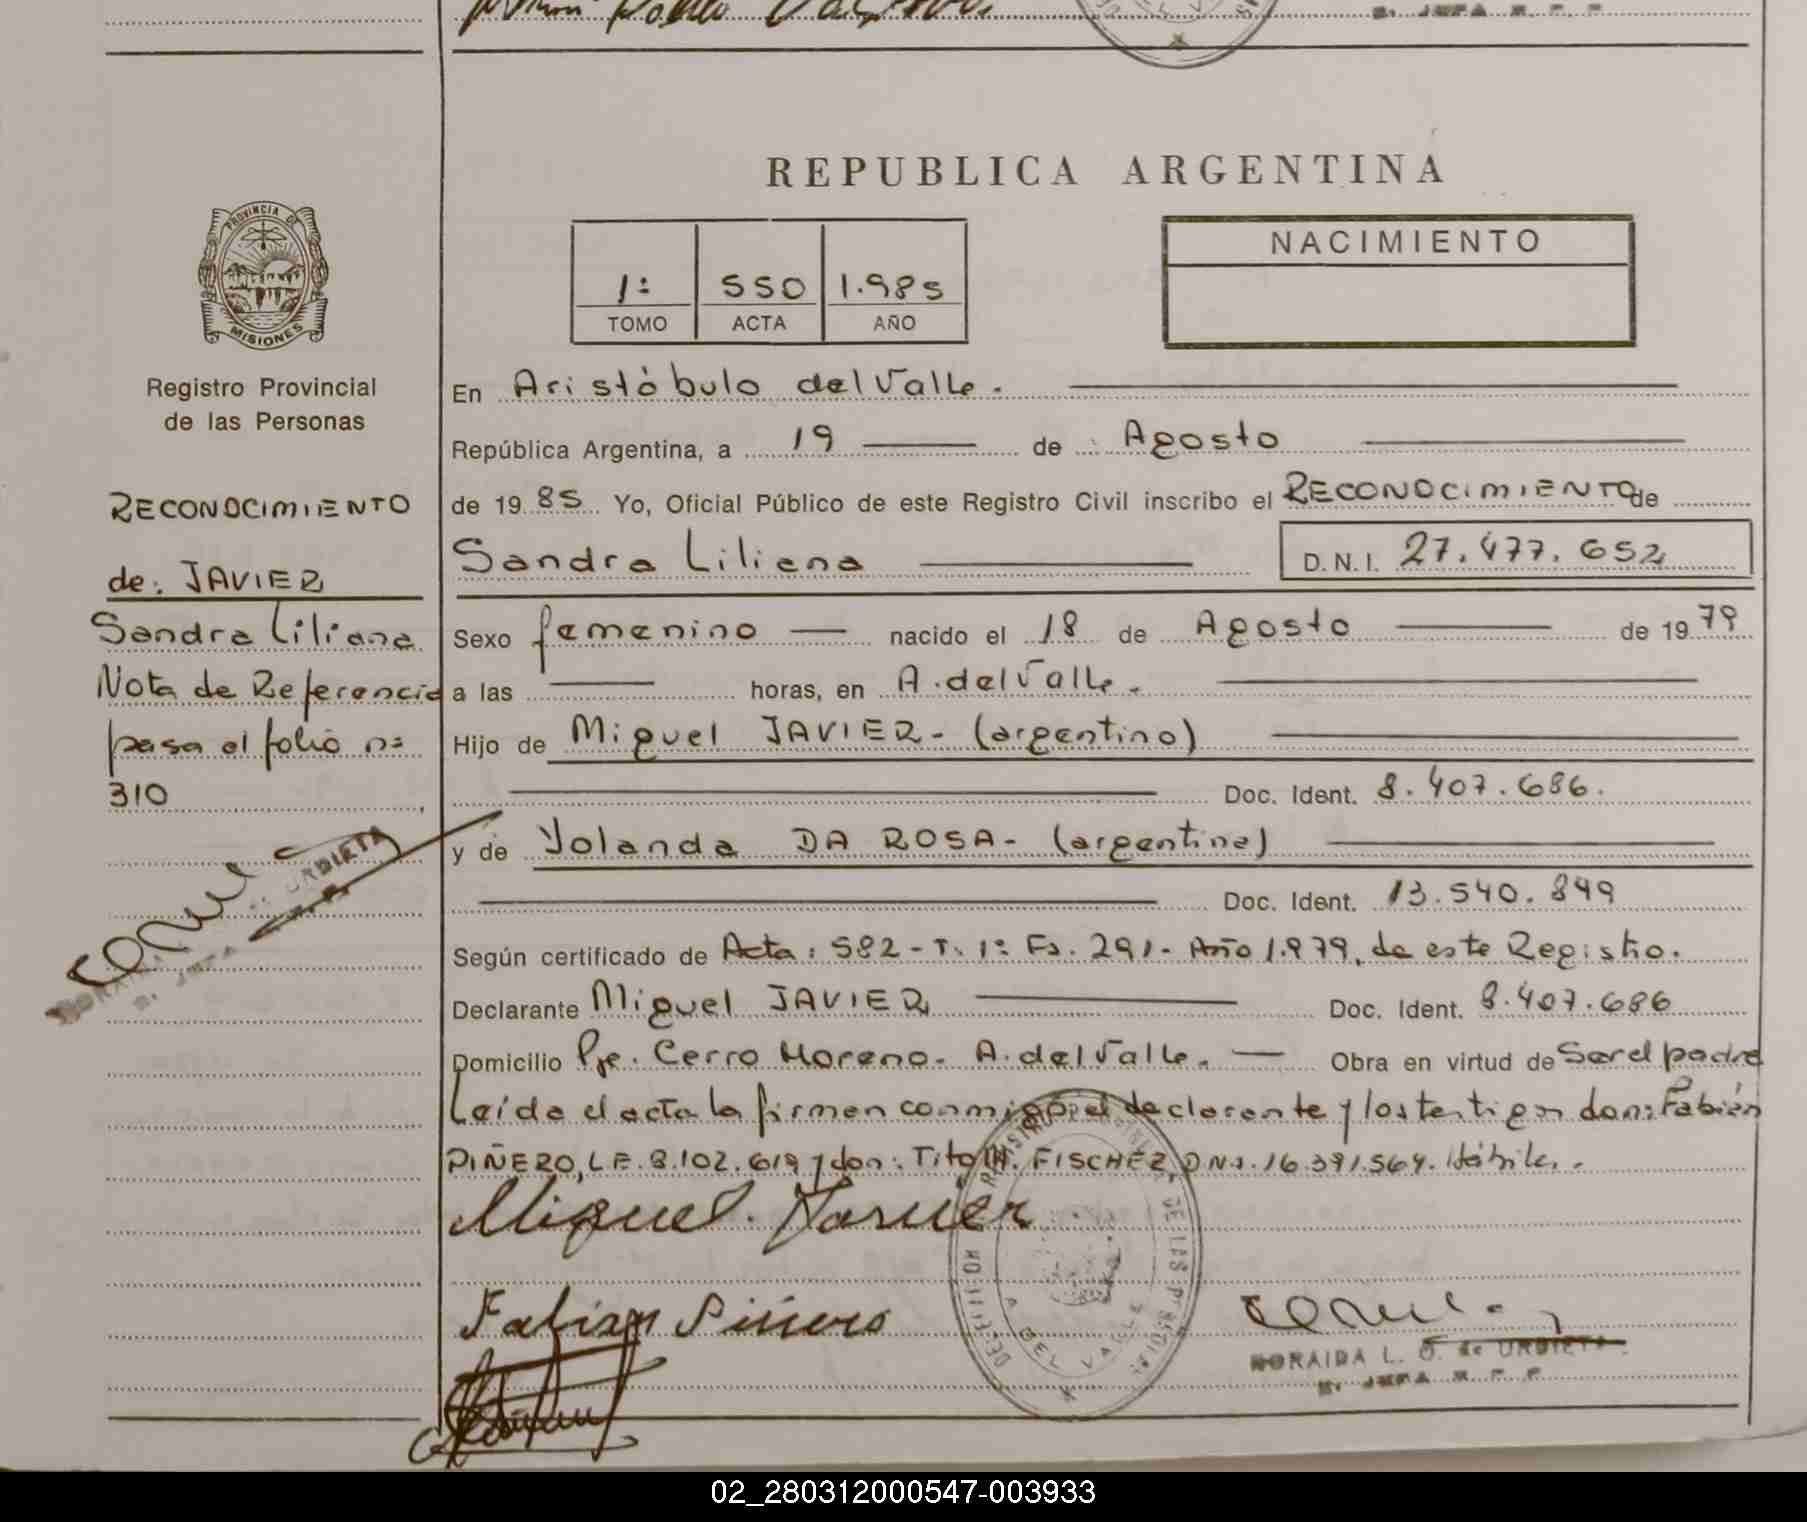 REPUBLICA ARGENTINA
PROVINCIA DE
MISIONES
Registro Provincial
de las Personas
RECONOCIMIENTO
de: JAVIER
Sandra Liliana
Nota de Referencia
pasa al folio nº
310
URDIETA
1º 550 1.985
TOMO ACTA AÑO
NACIMIENTO
En Aristóbulo del Valle.
República Argentina, a 19 de Agosto
de 1985 Yo, Oficial Público de este Registro Civil inscribo el RECONOCIMIENTO de
Sandra Liliana D.N.I. 27.477.652
Sexo femenino nacido el 18 de Agosto de 1979
a las horas, en A. del Valle.
Hijo de Miguel JAVIER- (argentino)
Doc. Ident. 8.407.686.
y de Yolanda DA ROSA- (argentina)
Doc. Ident. 13.540.849
Según certificado de Acta: 582-T. 1º Fs. 291- Año 1.979, de este Registro.
Declarante Miguel JAVIER Doc. Ident. 8.407.686
Domicilio Pje. Cerro Moreno- A. del Valle. Obra en virtud de Ser el padre
Leída el acta la firman conmigo el declarante y los testigos don: Fabián
PIÑERO, L.E. 8.102.619 y don: Tito H. FISCHER DNI. 16.391.564. Hábiles.
Miguel. Javier
Fabian Piñero
DEL VALLE
NORAIDA L. O. de URDIETA
JEFA R. P. P.
02_280312000547-003933